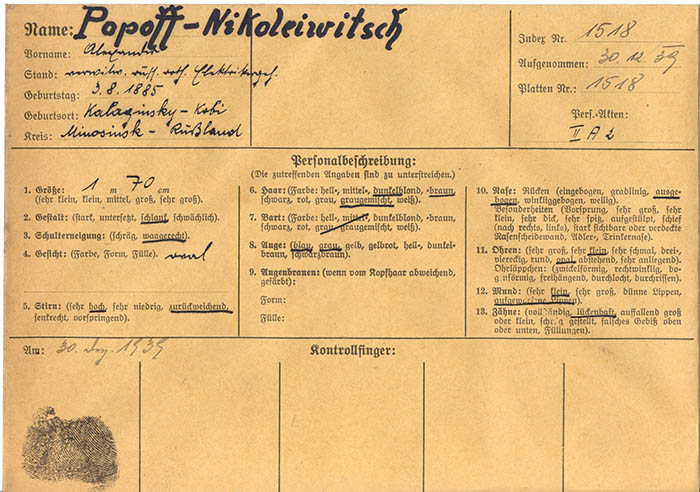 Name: Popoff-Nikoleiwitsch
Vorname: Alexander
Stand: verwitw. russ. orth. Elektrikergeh.
Geburtstag: 3.8.1885
Geburtsort: Kalaginsky-Kobi
Kreis: Minosinsk - Rußland
Index Nr. 1518
Aufgenommen: 30.12.39
Platten Nr.: 1518
Pers.-Akten:
II A 2
Personalbeschreibung:
(Die zutreffenden Angaben sind zu unterstreichen.)
1. Größe: 1 m 70 cm
(sehr klein, klein, mittel, groß, sehr groß).
2. Gestalt: (stark, untersetzt, schlank, schwächlich).
3. Schulterneigung: (schräg, waagerecht).
4. Gesicht: (Farbe, Form, Fülle). oval
5. Stirn: (sehr hoch, sehr niedrig, zurückweichend,
senkrecht, vorspringend).
6. Haar: (Farbe: hell-, mittel-, dunkelblond, -braun,
schwarz, rot, grau, graugemischt, weiß).
7. Bart: (Farbe: hell-, mittel-, dunkelblond, -braun,
schwarz, rot, grau, graugemischt, weiß).
8. Auge: (blau, grau, gelb, gelbrot, hell-, dunkel-
braun, schwarzbraun).
9. Augenbrauen: (wenn vom Kopfhaar abweichend,
gefärbt):
Form:
Fülle:
10. Nase: Rücken (eingebogen, gradlinig, ausge-
bogen, winkliggebogen, wellig).
Besonderheiten (Vorsprung, sehr groß, sehr
klein, sehr dick, sehr spitz, aufgestülpt, schief
(nach rechts, links), stark sichtbare oder verdeckte
Nasenscheidewand, Adler-, Trinkernase).
11. Ohren: (sehr groß, sehr klein, sehr schmal, drei-,
viereckig, rund, oval, abstehend, sehr anliegend).
Ohrläppchen: (zwickelförmig, rechtwinklig, bo-
genförmig, freihängend, durchlocht, durchrissen).
12. Mund: (sehr klein, sehr groß, dünne Lippen,
aufgeworfene Lippen).
13. Zähne: (vollständig, lückenhaft, auffallend groß
oder klein, schräg gestellt, falsches Gebiß oben
oder unten, Füllungen).
Am: 30. Dez. 1939
Kontrollfinger: